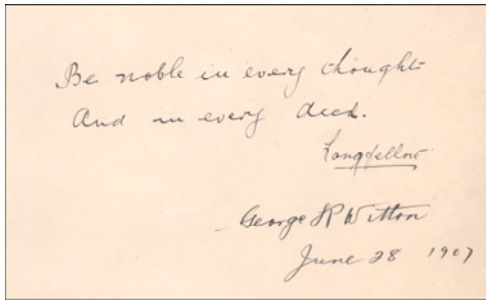 Be noble in every thought
And in every deed.
Longfellow
George R Witton
June 28 1907